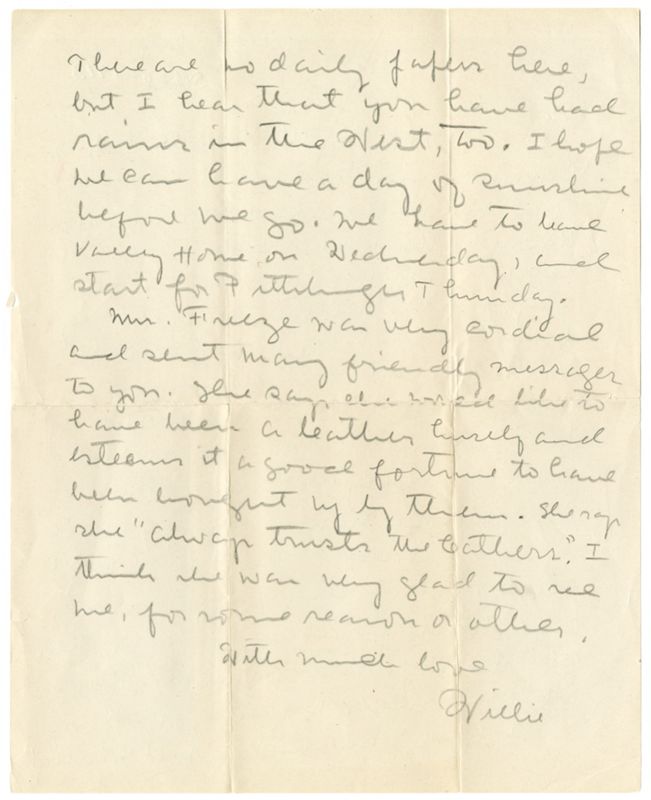 There are no daily papers here,
but I hear that you have had
rains in the West, too. I hope
we can have a day of sunshine
before we go. We have to leave
Valley Home on Wednesday, and
start for Pittsburgh Thursday.
Mrs. Freeze was very cordial
and sent many friendly messages
to you. She says she would like to
have been a Cather herself and
esteems it a good fortune to have
been brought up by them. She says
she "always trusts the Cathers." I
think she was very glad to see
me, for some reason or other.
With much love
Willie